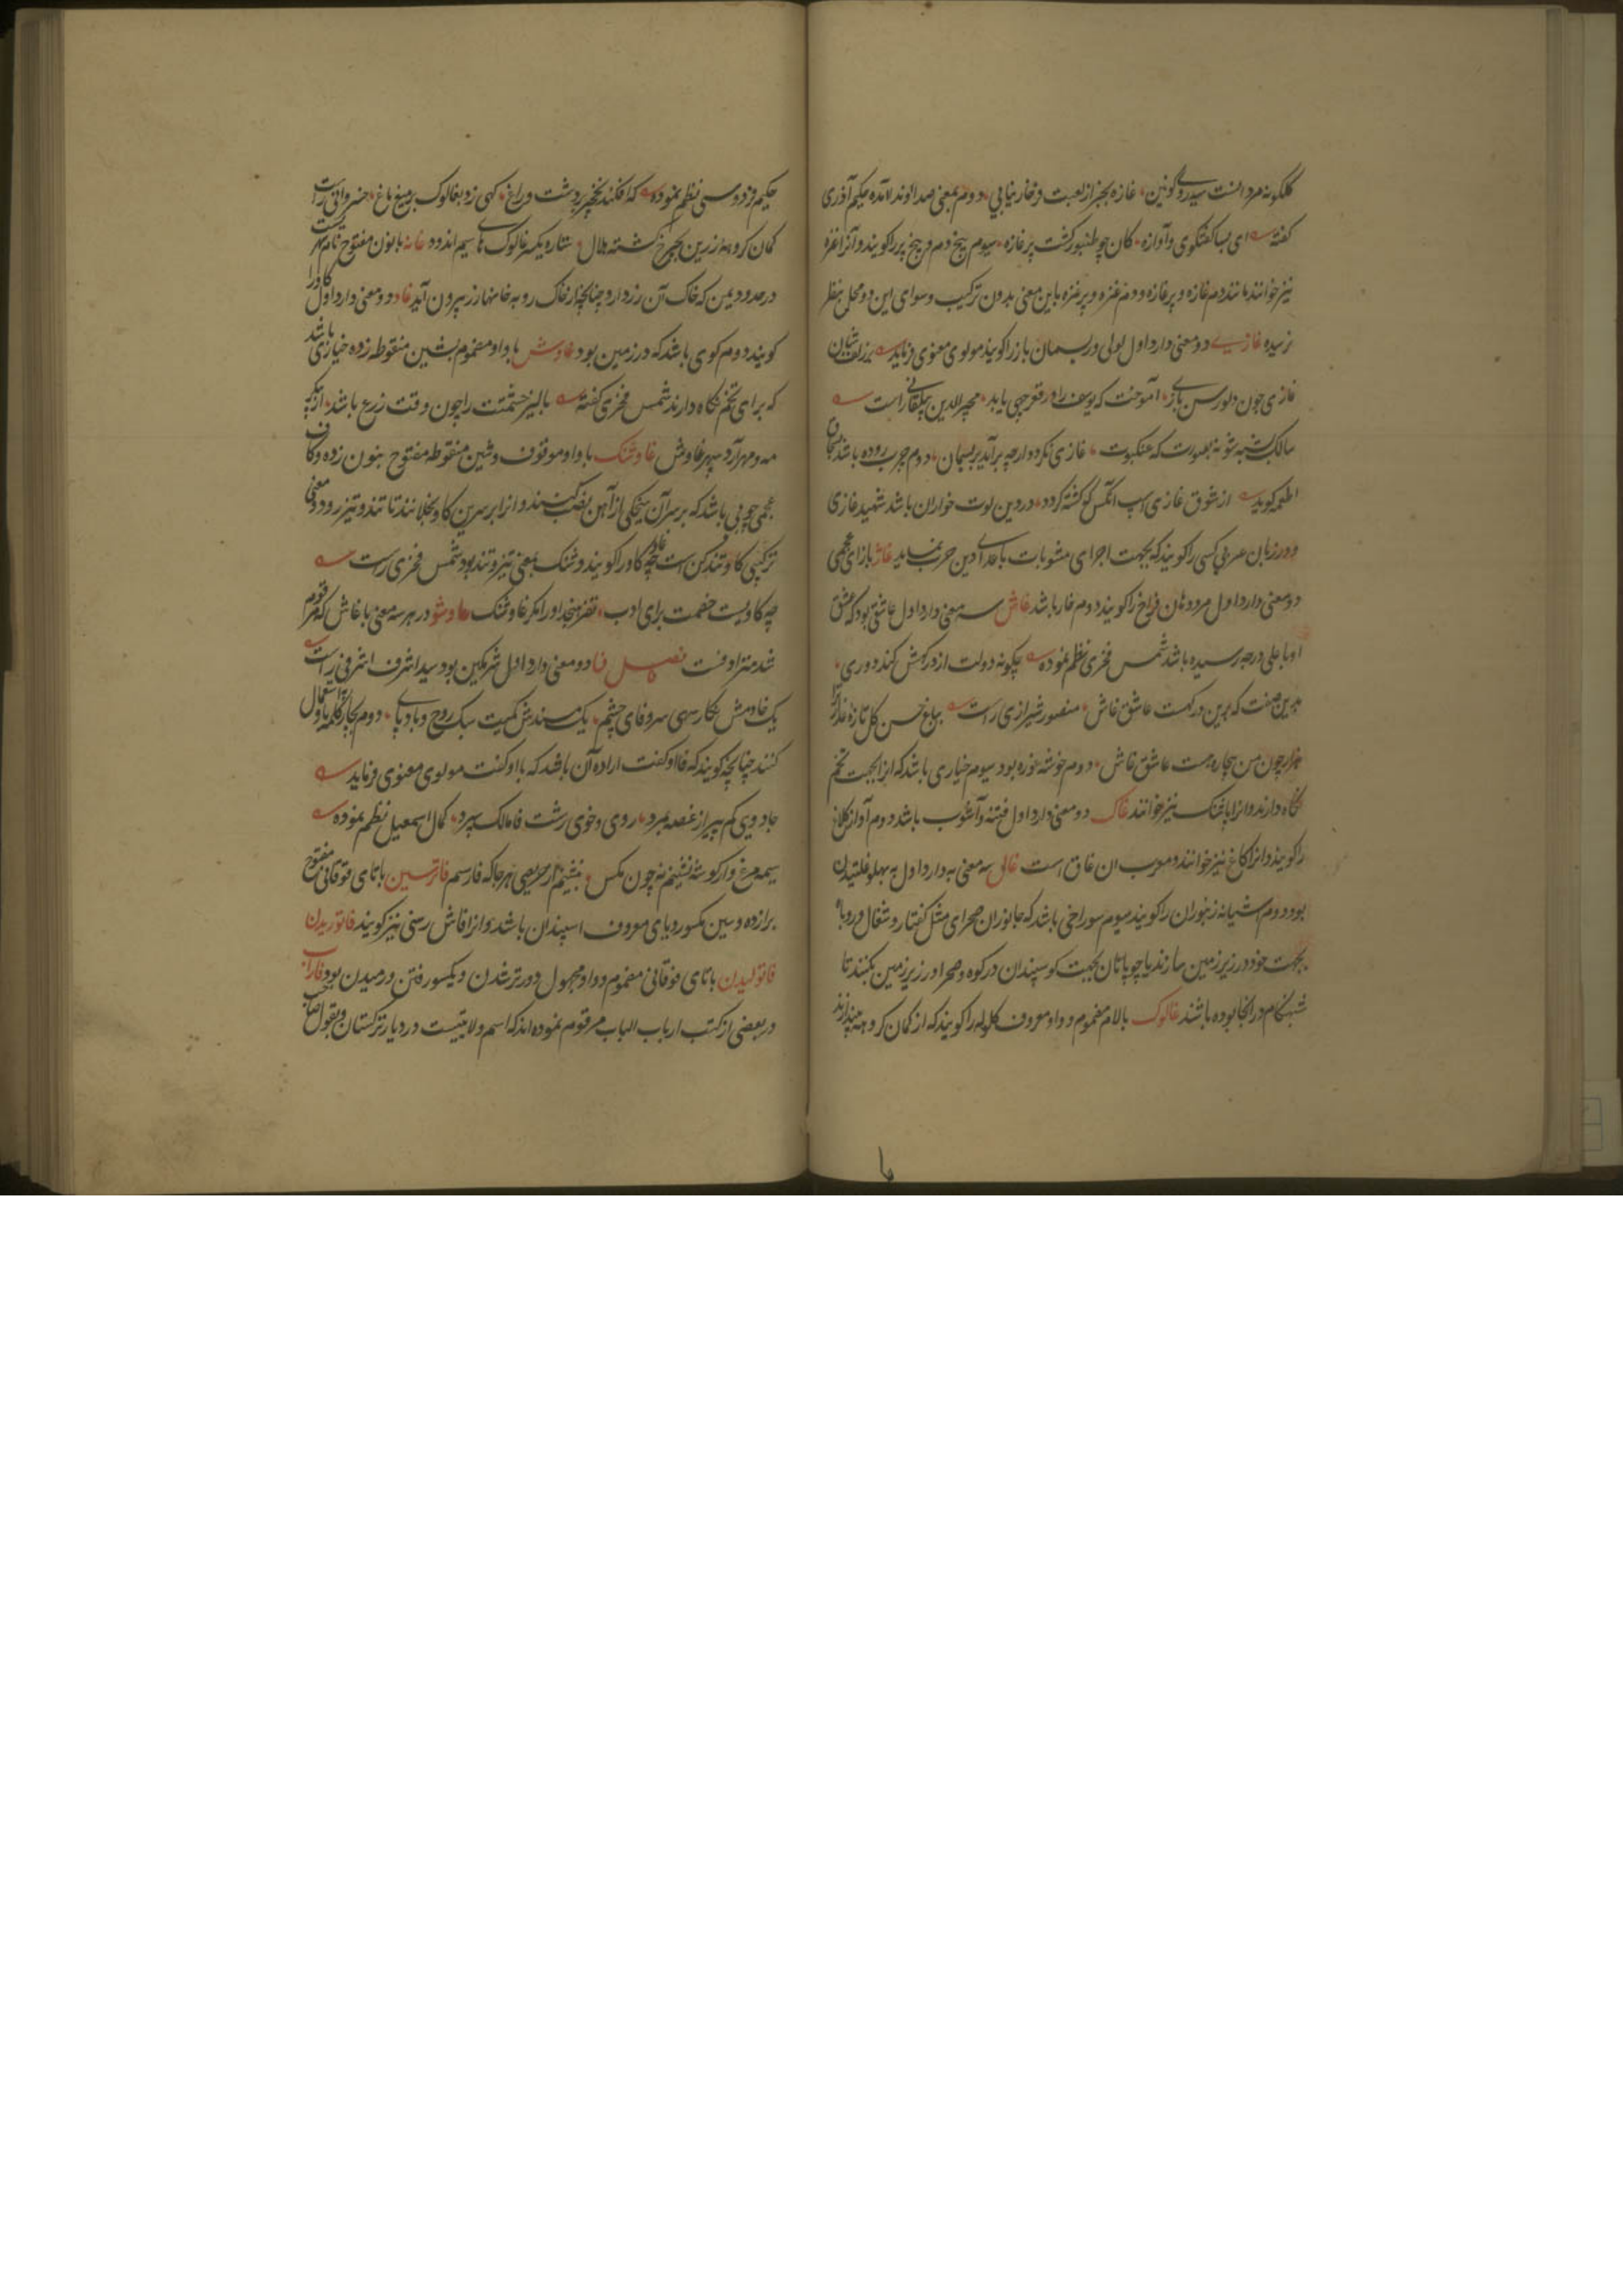 گلگونه مرد انست سیدروی کونین غازه بجز از لعبت فرخار نیابی دوم بمعنی صدا و ندا آمده حکیم آذری
گفته ای بسا گفتگوی و آوازه کان چو طنبور گشت پر غازه سیوم بیخ دم و بیخ پر را گویند و آنرا غزه
نیز خوانند مانند دم غازه و پر غازه و دم غزه و پر غزه باین معنی بدون ترکیب و سوای این دو محل بنظر
نرسیده غازی دو معنی دارد اول لولی و ریسمان باز را گویند مولوی معنوی فرماید بزلف
غازی چون دلو رسن باز آموخت که یوسف را در قعر چهی یابد مجیرالدین بیلقانی راست
سالک شبه شو نه بصورت که عنکبوت غازی نکردد ارچه برآید بریسمان دوم چرب روده باشد
اطعمه گوید از شوق غازی اسب انکس که کشته کردد در دین لوت خواران باشد شهید غازی
و در زبان عربی کسی را گویند که بجهت اجرای مثوبات با اعدای دین حرب نماید غاژ بازای عجمی
دو معنی دارد اول مرد دهان فراخ را گویند دوم خار باشد غاش سه معنی دارد اول عاشقی بود که عشق
او باعلی درجه رسیده باشد شمس فخری نظم نموده چگونه دولت از درگهش کند دوری
بدین صفت که برین درگهست عاشق غاش منصور شیرازی راست بباغ حسن گل تازه
هزار چون من بیچاره هست عاشق غاش دوم خوشه غوره بود سیوم خیاری باشد که از بجهت تخم
نگاه دارند و انرا پاشنگ نیز خوانند غاک دو معنی دارد اول فتنه و آشوب باشد دوم آواز کلاغ
را گویند و انرا کاغ نیز خوانند و معرب ان غاق است غال سه معنی دارد اول به پهلو غلتیدن
بود دوم اشیانه زنبوران را گویند سیوم سوراخی باشد که جانوران صحرای مثل کفتار و شغال و روباه
بجهت خود در زیر زمین سازند یا چوپانان بجهت کوسپندان در کوه و صحرا در زیر زمین بکنند تا
شبهنگام در انجا بوده باشند غالوک بالام مضموم و واو معروف گلوله را گویند که از کمان گروهه بیندازند
حکیم فردوسی نظم نموده که افکند نخجیر بر دشت و راغ کهی زد بغالوک بر میغ ماغ خسروانی راست
کمان گروهه زرین بچرخ گشته هلال ستاره یکسر غالوک های سیم اندود غانه بانون مفتوح نام شهریست
در حدود یمن که خاک آن زر دارد چنانچه از خاک رو به خانها زر بیرون آید غاد دو معنی دارد اول کاو را
گویند دوم کوی باشد که در زمین بود غاوش با واو مضموم بشین منقوطه زده خیاری باشد
که برای تخم نگاه دارند شمس فخری گفته بالیز حشمتت را چون وقت زرع باشد از
مه و مهر آرد سپهر غاوش غاوشنک با واو موقوف و شین منقوطه مفتوح بنون زده و کاف
عجمی چوبی باشد که بر سر آن میخکی از آهن نصب کنند و انرا بر سرین گاو بخلانند تا تند و تیز رود و معنی
ترکیبی گاو تند کن است چه غاو گاو را گویند و شنک بمعنی تیز و تند بود شمس فخری راست
چه گاویست خصمت برای ادب تفرنجد او را مگر غاوشنک غاوشو در هر سه معنی با غاش که مرقوم
شد مترادفست فصل فا دو معنی دارد اول شرمگین بود سید اشرف اشرفی راست
یک خادمش نگار سهی سرو فای چشم یک سندش کمیت سبک روح و بادپای دوم بجای کلمه با استعمال
کنند چنانچه گویند که فا او گفت اراده آن باشد که با او گفت مولوی معنوی فرماید
جادویی کم پیر از غصه بمرد روی و خوی زشت فا مالک سپرد کمال اسمعیل نظم نموده
سیمرغ وار گوشه نشینم نه چون مگس بنشینم از حریصی هر جا که فارسم فاترسین باتای فوقانی مفتوح
برازده و سین مکسور و یای معروف اسپندان باشد و انرا فاش رستی نیز گویند فاتوریدن
فاتولیدن باتای فوقانی مضموم و واو مجهول دورتر شدن و یکسو رفتن و رمیدن بود فاراب
در بعضی از کتب ارباب الباب مرقوم نموده اند که اسم ولایتیست در دیار ترکستان و بقول صاحب